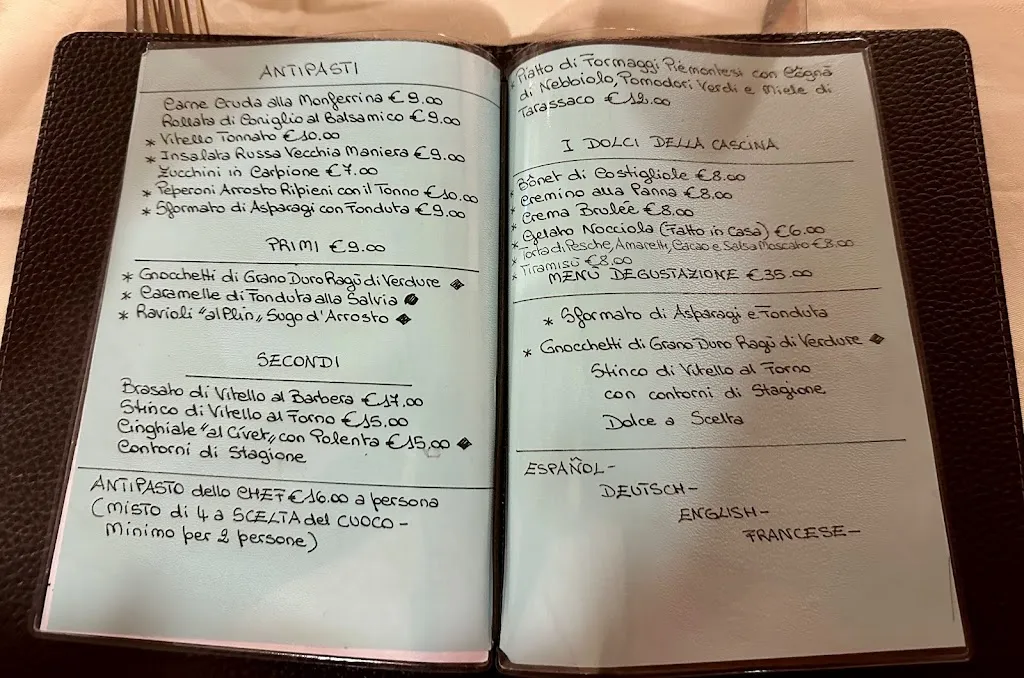 ANTIPASTI
Carne Cruda alla Monferrina €9.00
Rollata di Coniglio al Balsamico €9.00
* Vitello Tonnato €10.00
* Insalata Russa Vecchia Maniera €9.00
Zucchini in Carpione €7.00
* Peperoni Arrosto Ripieni con il Tonno €10.00
* Sformato di Asparagi con Fonduta €9.00
PRIMI €9.00
* Gnocchetti di Grano Duro Ragù di Verdure ◆
* Caramelle di Fonduta alla Salvia ◆
* Ravioli "al Plin" Sugo d'Arrosto ◆
SECONDI
Brasato di Vitello al Barbera €17.00
Stinco di Vitello al Forno €15.00
Cinghiale "al Civet" con Polenta €15.00 ◆
Contorni di Stagione
ANTIPASTO dello CHEF €16.00 a persona
(MISTO di 4 a SCELTA del CUOCO -
Minimo per 2 persone)
* Piatto di Formaggi Piemontesi con Cögnà
di Nebbiolo, Pomodori Verdi e Miele di
Tarassaco €12.00
I DOLCI DELLA CASCINA
* Bônet di Costigliole €8.00
* Cremino alla Panna €8.00
* Crema Brulée €8.00
* Gelato Nocciola (Fatto in Casa) €6.00
* Torta di Pesche, Amaretti, Cacao e Salsa Moscato €8.00
* Tiramisù €8.00
MENÙ DEGUSTAZIONE €35.00
* Sformato di Asparagi e Fonduta
* Gnocchetti di Grano Duro Ragù di Verdure ◆
Stinco di Vitello al Forno
con contorni di Stagione
Dolce a Scelta
ESPAÑOL-
DEUTSCH-
ENGLISH-
FRANCESE-